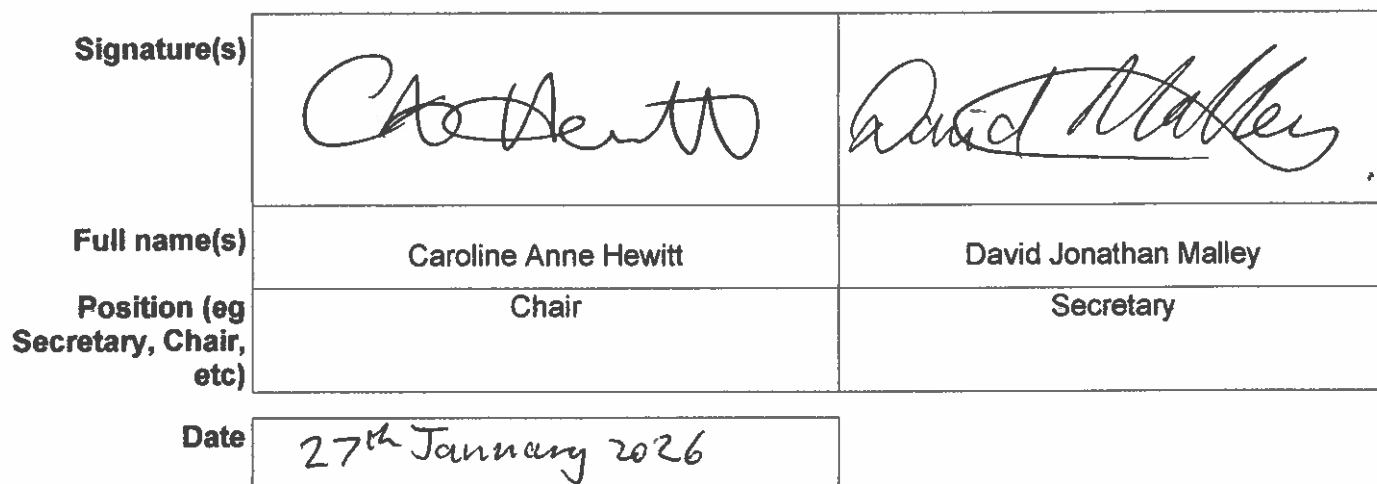 Signature(s)
CA Hewitt
David Malley
Full name(s)
Caroline Anne Hewitt
David Jonathan Malley
Position (eg
Secretary, Chair,
etc)
Chair
Secretary
Date
27th January 2026